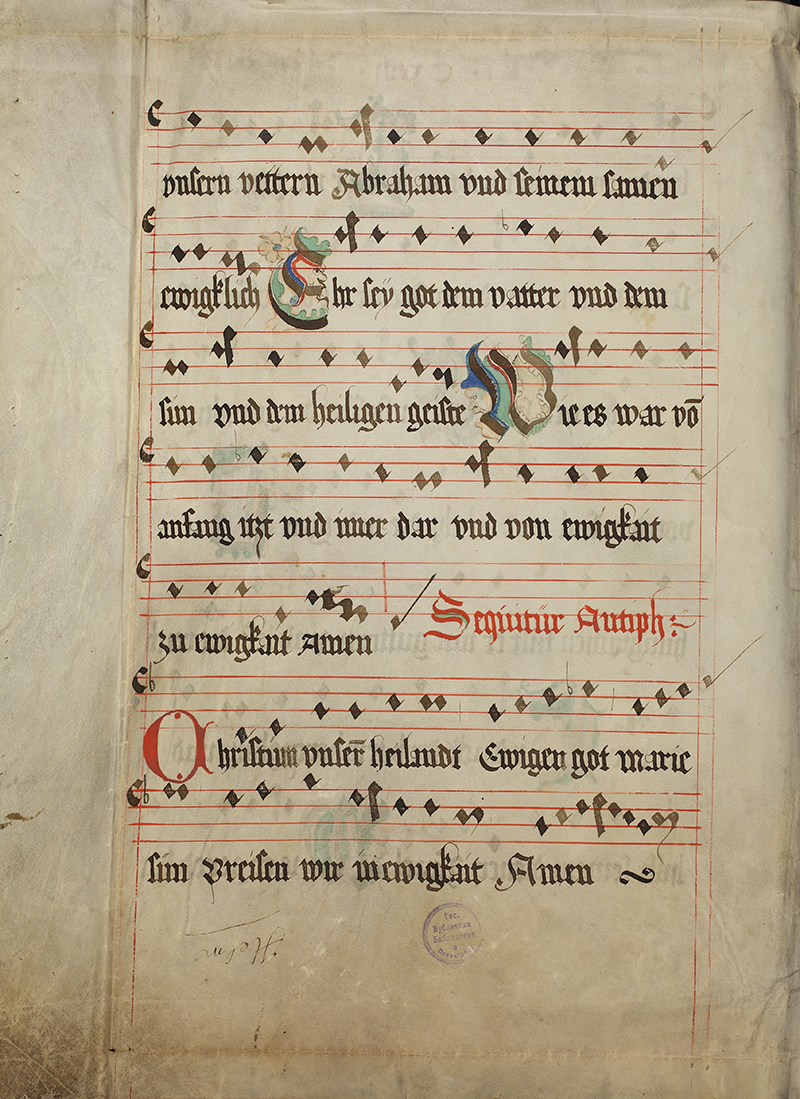 vnsern vettern Abraham vnd seinem samen
ewigklich Ehr sey got dem vatter vnd dem
sun vnd dem heiligen geiste Wie es war vō
anfang itzt vnd imer dar vnd von ewigkait
zu ewigkait Amen Sequitur Antiph:
Christum vnser̄ heilandt Ewigen got marie
sun Preisen wir in ewigkait Amen
Гос.
Публичная
Библиотека
в
Ленинграде